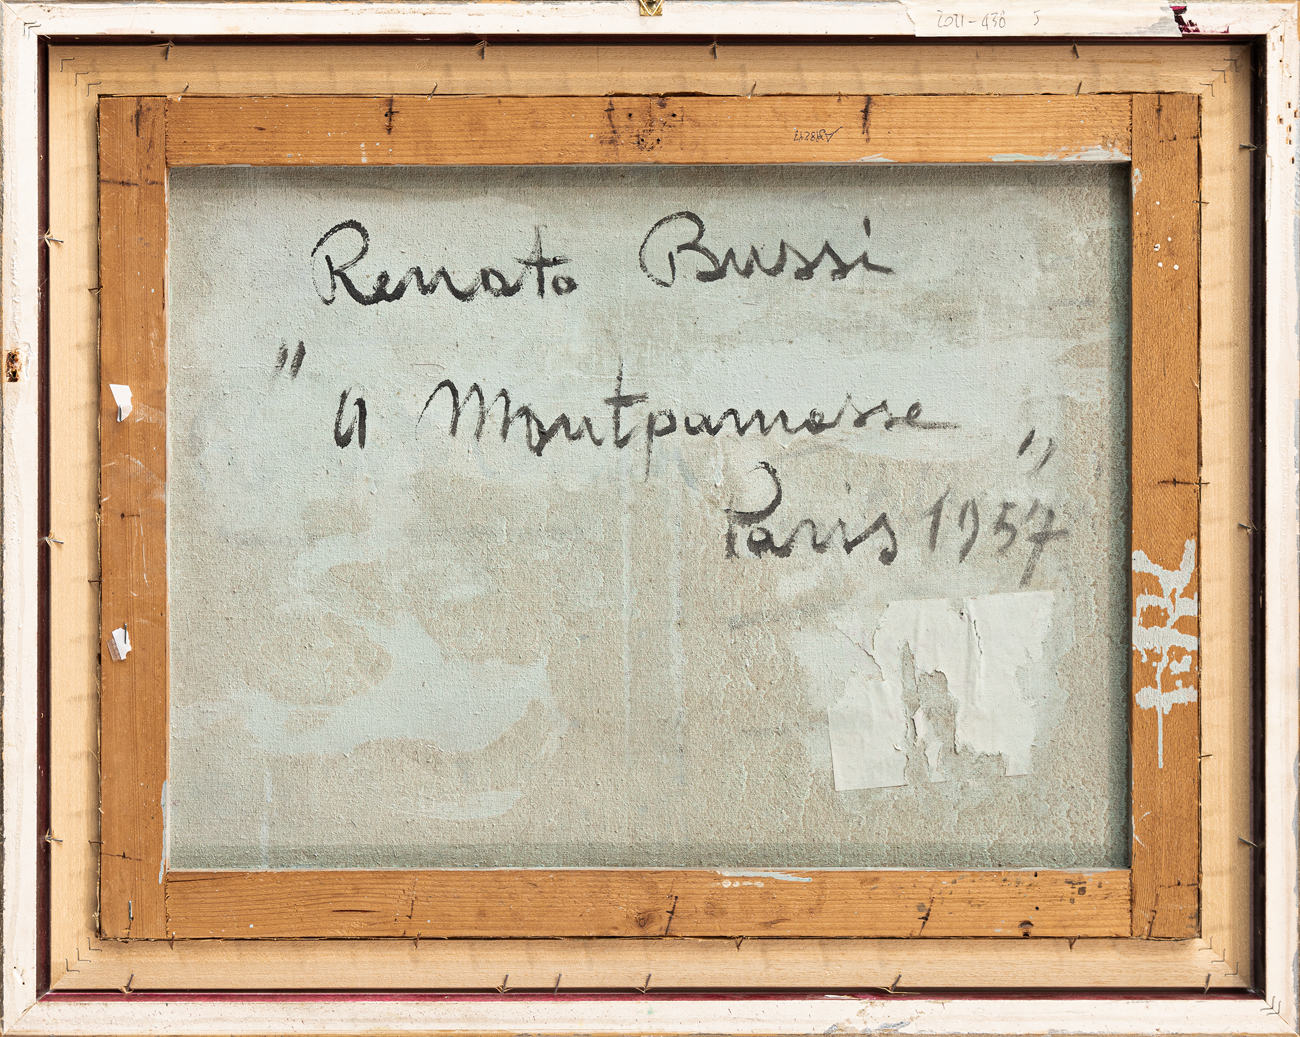 2021-436 5
Renato Bussi
"
a Montparnasse
"
Paris 1957